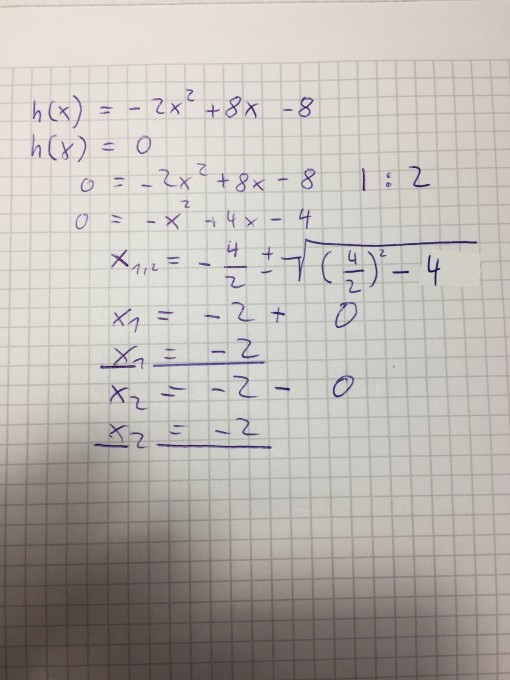 h(x) = - 2x² + 8x - 8
h(x) = 0
0 = - 2x² + 8x - 8 | : 2
0 = - x² + 4x - 4
x₁,₂ = - 4/2 ± √((4/2)² - 4)
x₁ = - 2 + 0
x₁ = - 2
x₂ = - 2 - 0
x₂ = - 2